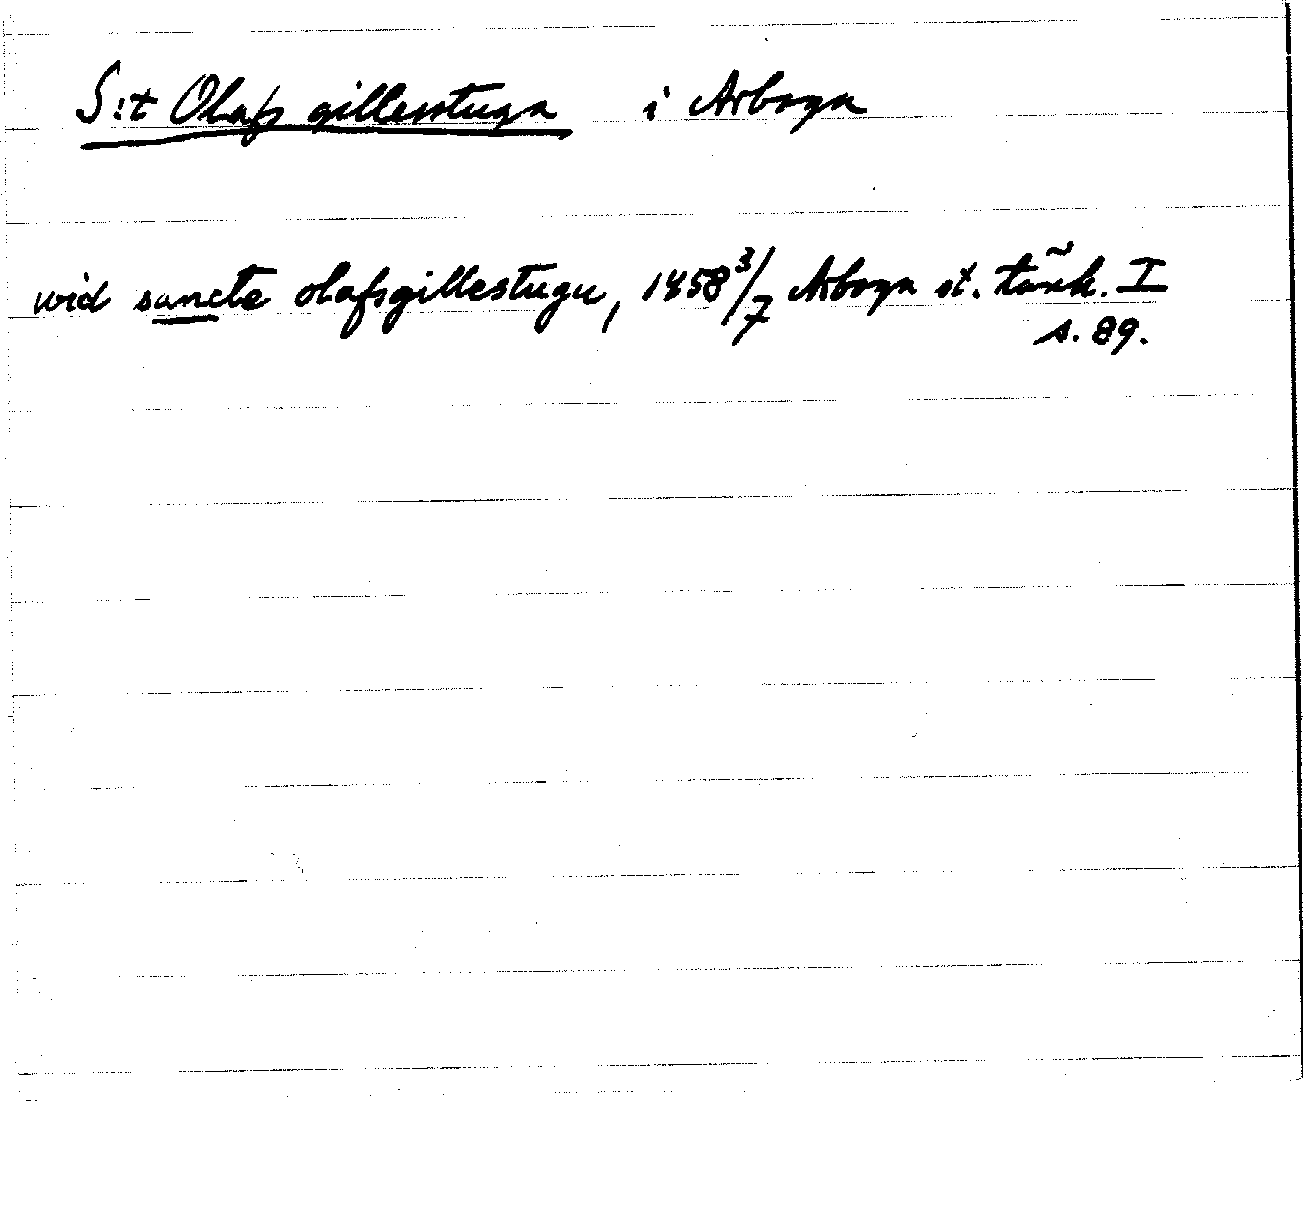 S:t Olafs gillesstuga i Arboga
wid sancte olafsgillestugu, 1458 3/7 Arboga st. tänk. I
s. 89.